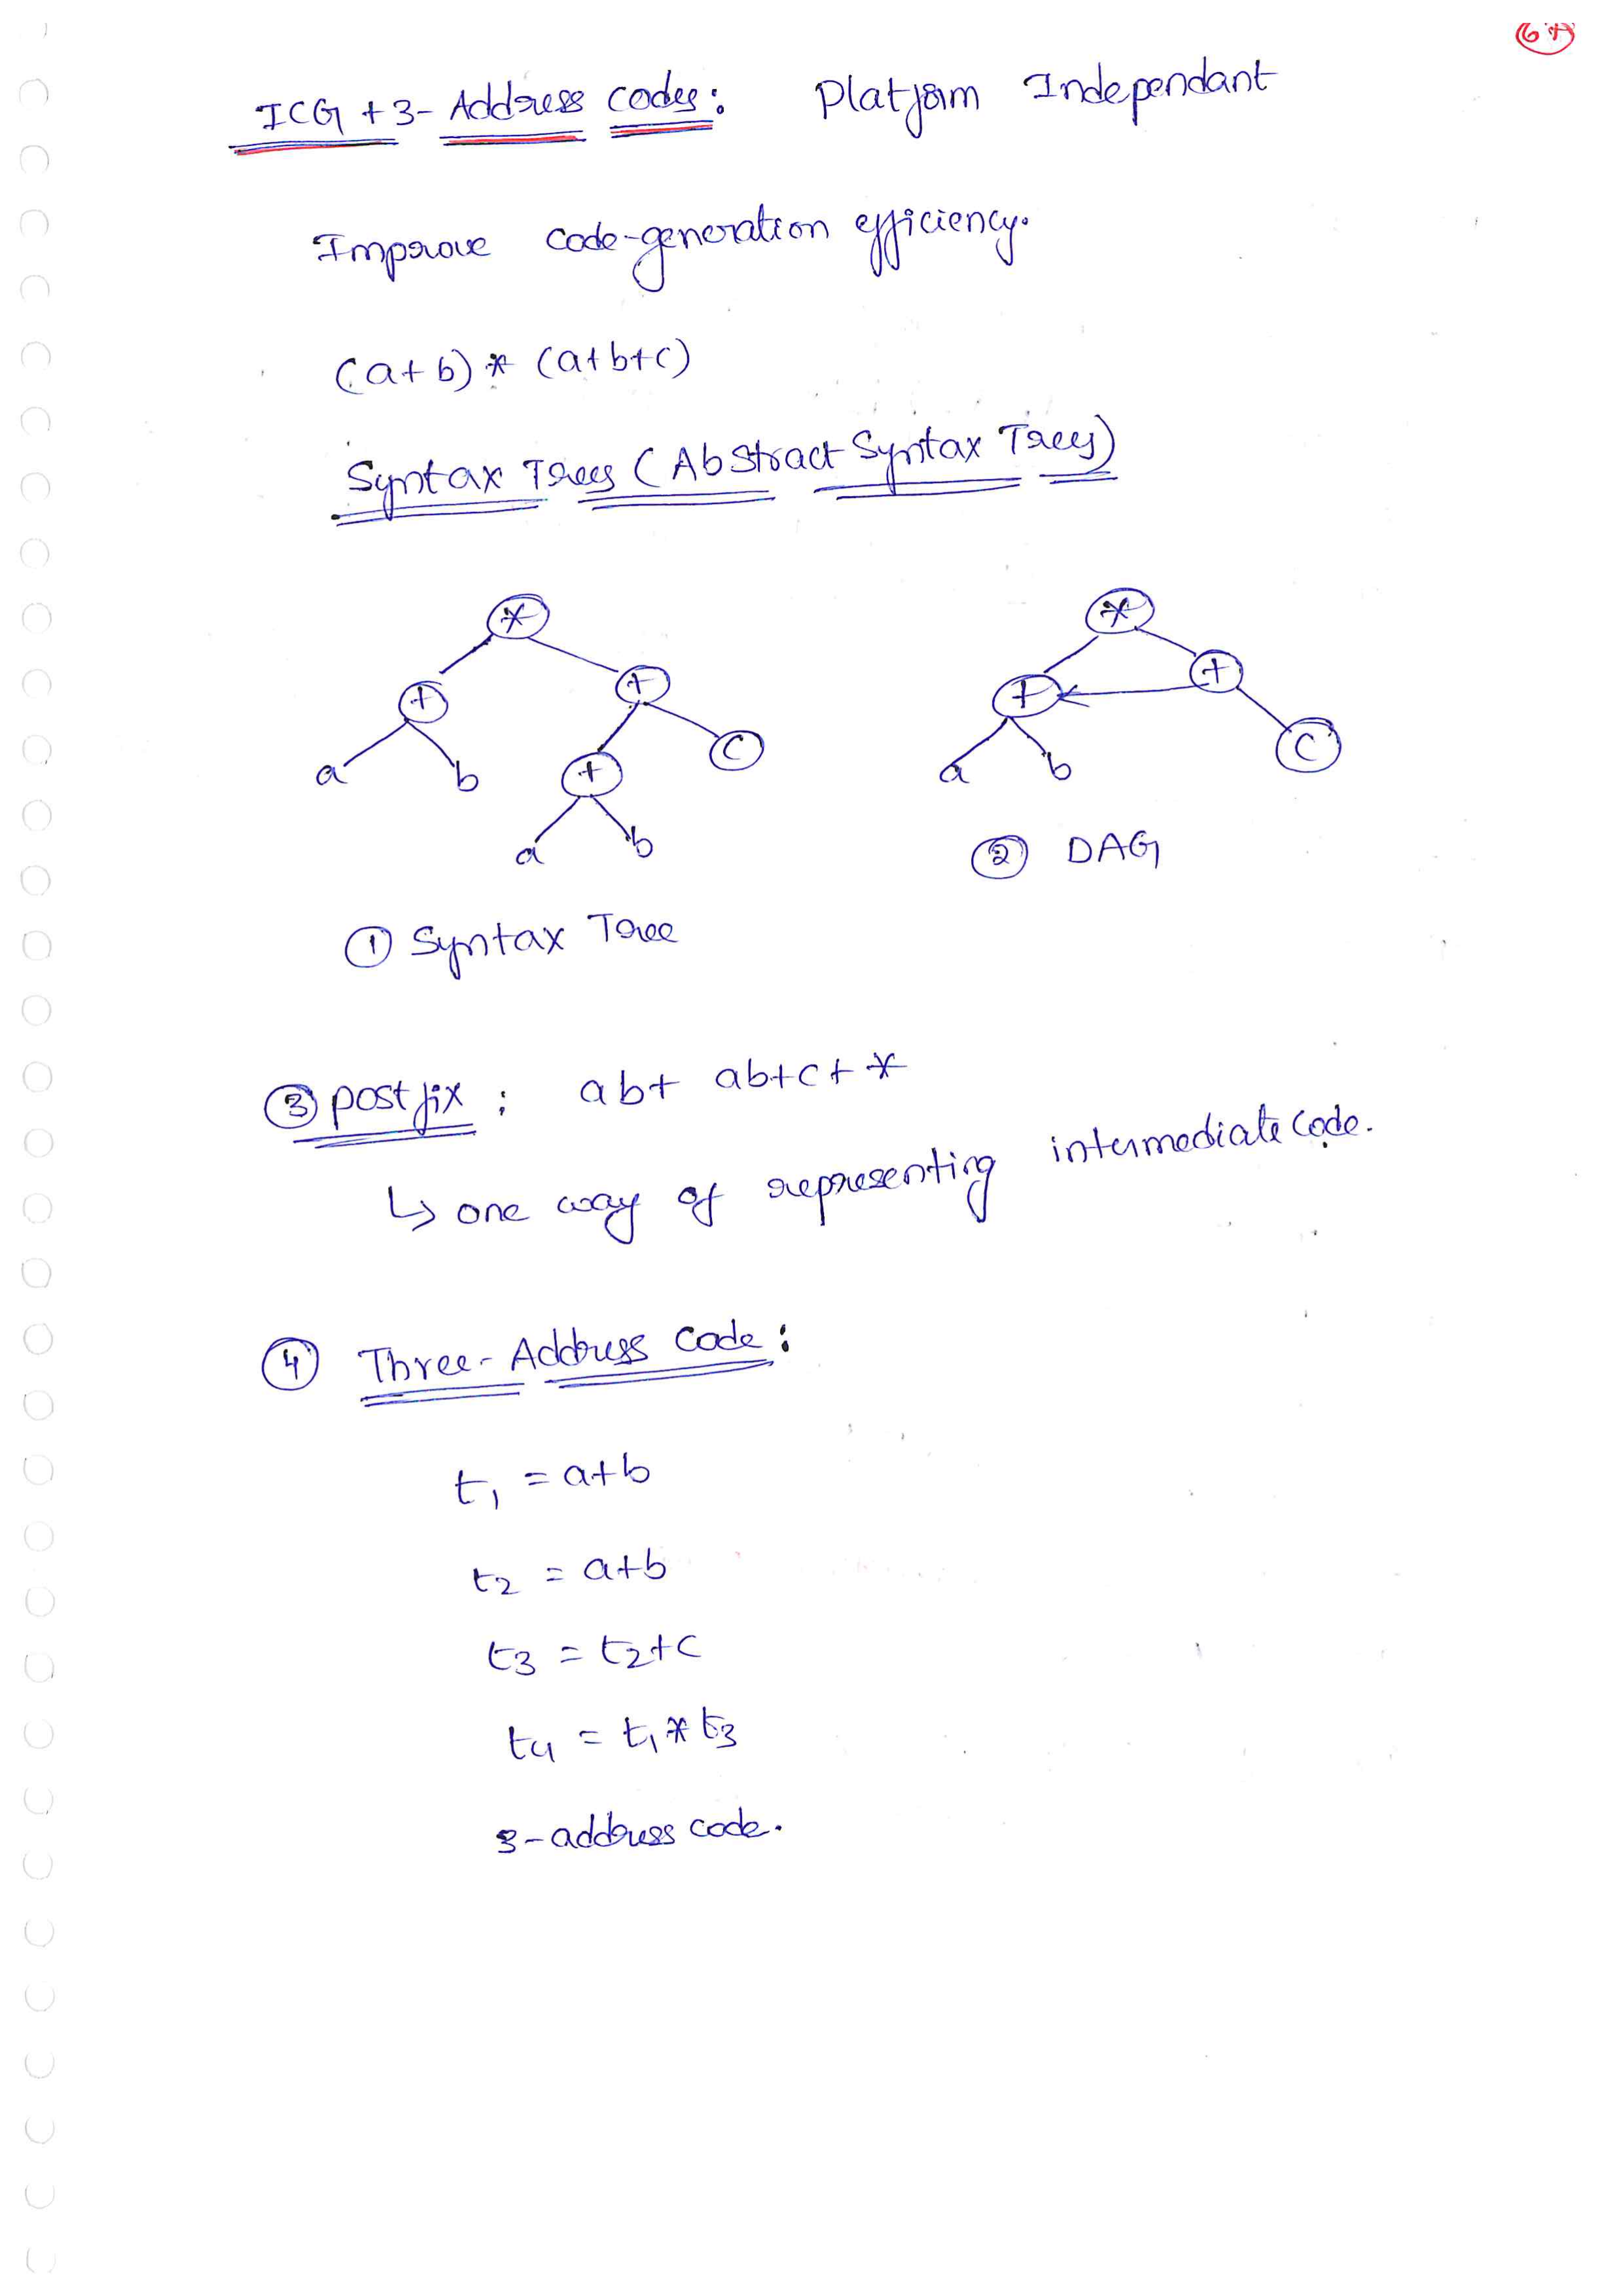 67
ICG + 3- Address codes: Platform Independant
Improve code-generation efficiency.
(a+b) * (a+b+c)
Syntax Trees (Abstract Syntax Trees)
* *
+ + + +
a b + C a b C
a b
② DAG
① Syntax Tree
③ postfix : ab+ ab+c+*
↳ one way of representing intermediate code.
④ Three-Address code:
t1 = a+b
t2 = a+b
t3 = t2+c
t4 = t1 * t3
3-address code.